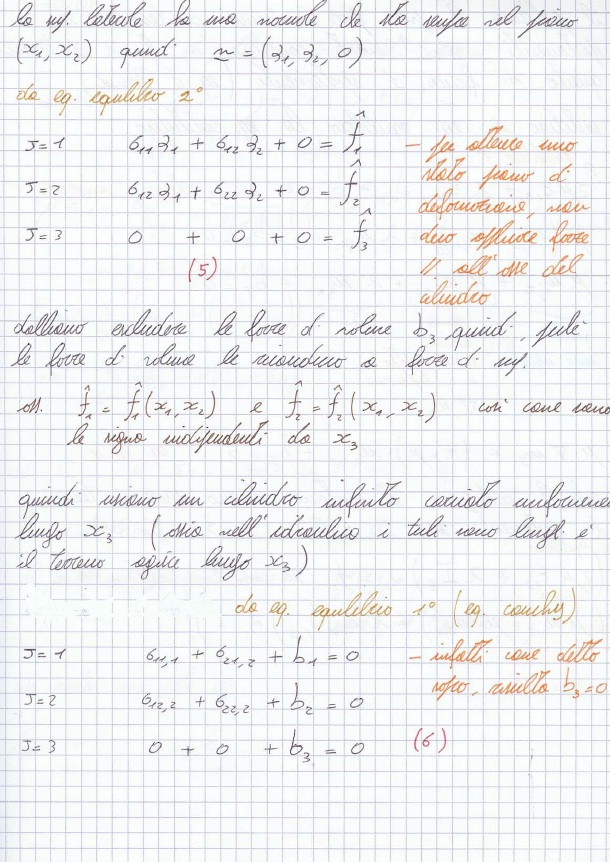 la sup. laterale ha una normale che sta sempre nel piano
(x₁, x₂) quindi n = (n₁, n₂, 0)
da eq. equilibrio 2°
J=1 σ₁₁n₁ + σ₁₂n₂ + 0 = f̂₁
J=2 σ₁₂n₁ + σ₂₂n₂ + 0 = f̂₂
J=3 0 + 0 + 0 = f̂₃
(5)
- per ottenere uno
stato piano di
deformazione, non
devo applicare forze
// all'asse del
cilindro
dobbiamo escludere le forze di volume b₃ quindi, perchè
le forze di volume le rimandiamo a forze di sup.
oss. f̂₁ = f̂₁(x₁, x₂) e f̂₂ = f̂₂(x₁, x₂) così come sono
le sigma indipendenti da x₃
quindi usiamo un cilindro infinito caricato uniformemen
lungo x₃ (ossia nell'idraulica i tubi sono lunghi e
il terreno agisce lungo x₃)
da eq. equilibrio 1° (eq. cauchy)
J=1 σ₁₁,₁ + σ₂₁,₂ + b₁ = 0
J=2 σ₁₂,₂ + σ₂₂,₂ + b₂ = 0
J=3 0 + 0 + b₃ = 0
- infatti come detto
sopra, risulta b₃=0
(6)